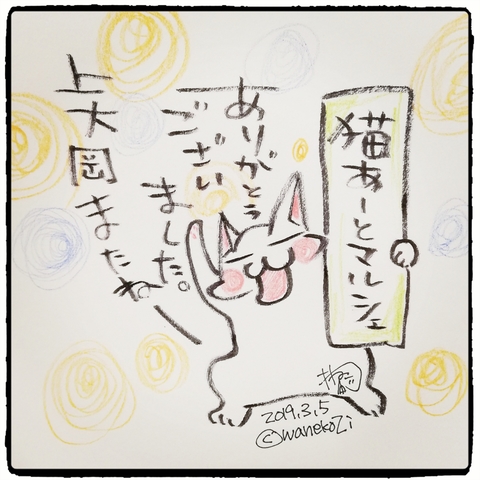 猫あーとマルシェ
ありがとう
ございい
ました。
上大岡またね
2019.3,5
©wanekoZi